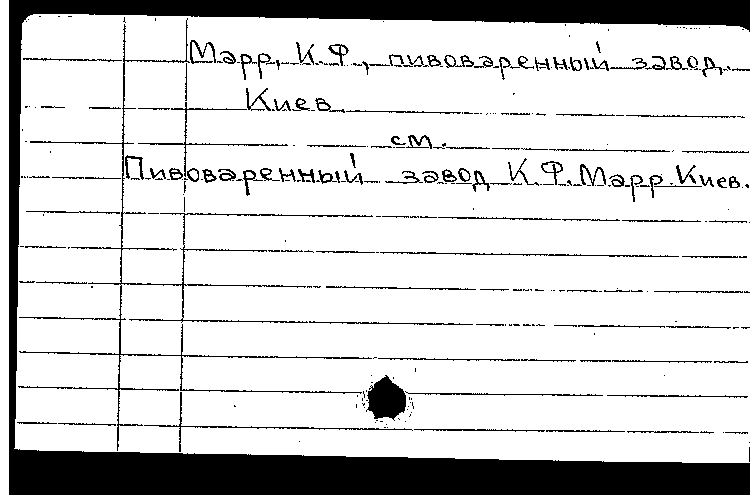 Марр, К. Ф., пивоваренный завод.
Киев.
см.
Пивоваренный завод К. Ф. Марр. Киев.